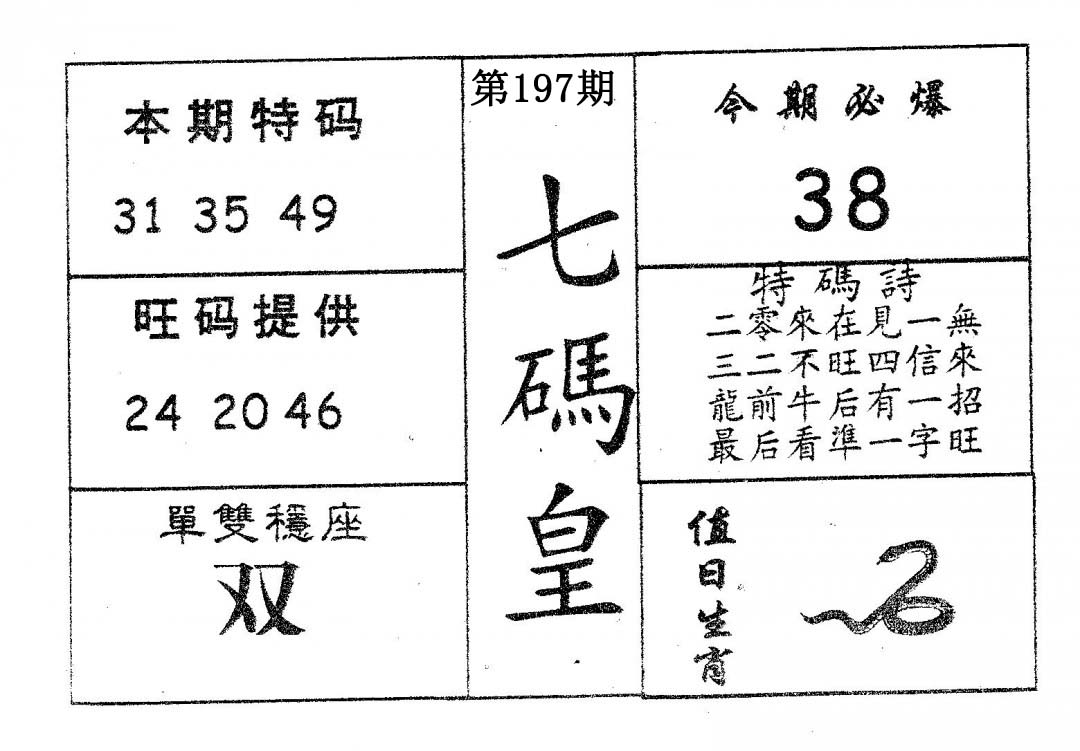 本期特码
31 35 49
旺码提供
24 20 46
單雙穩座
双
第197期
七碼皇
今期必爆
38
特碼詩
二零來在見一無
三二不旺四信來
龍前牛后有一招
最后看準一字旺
值日生肖